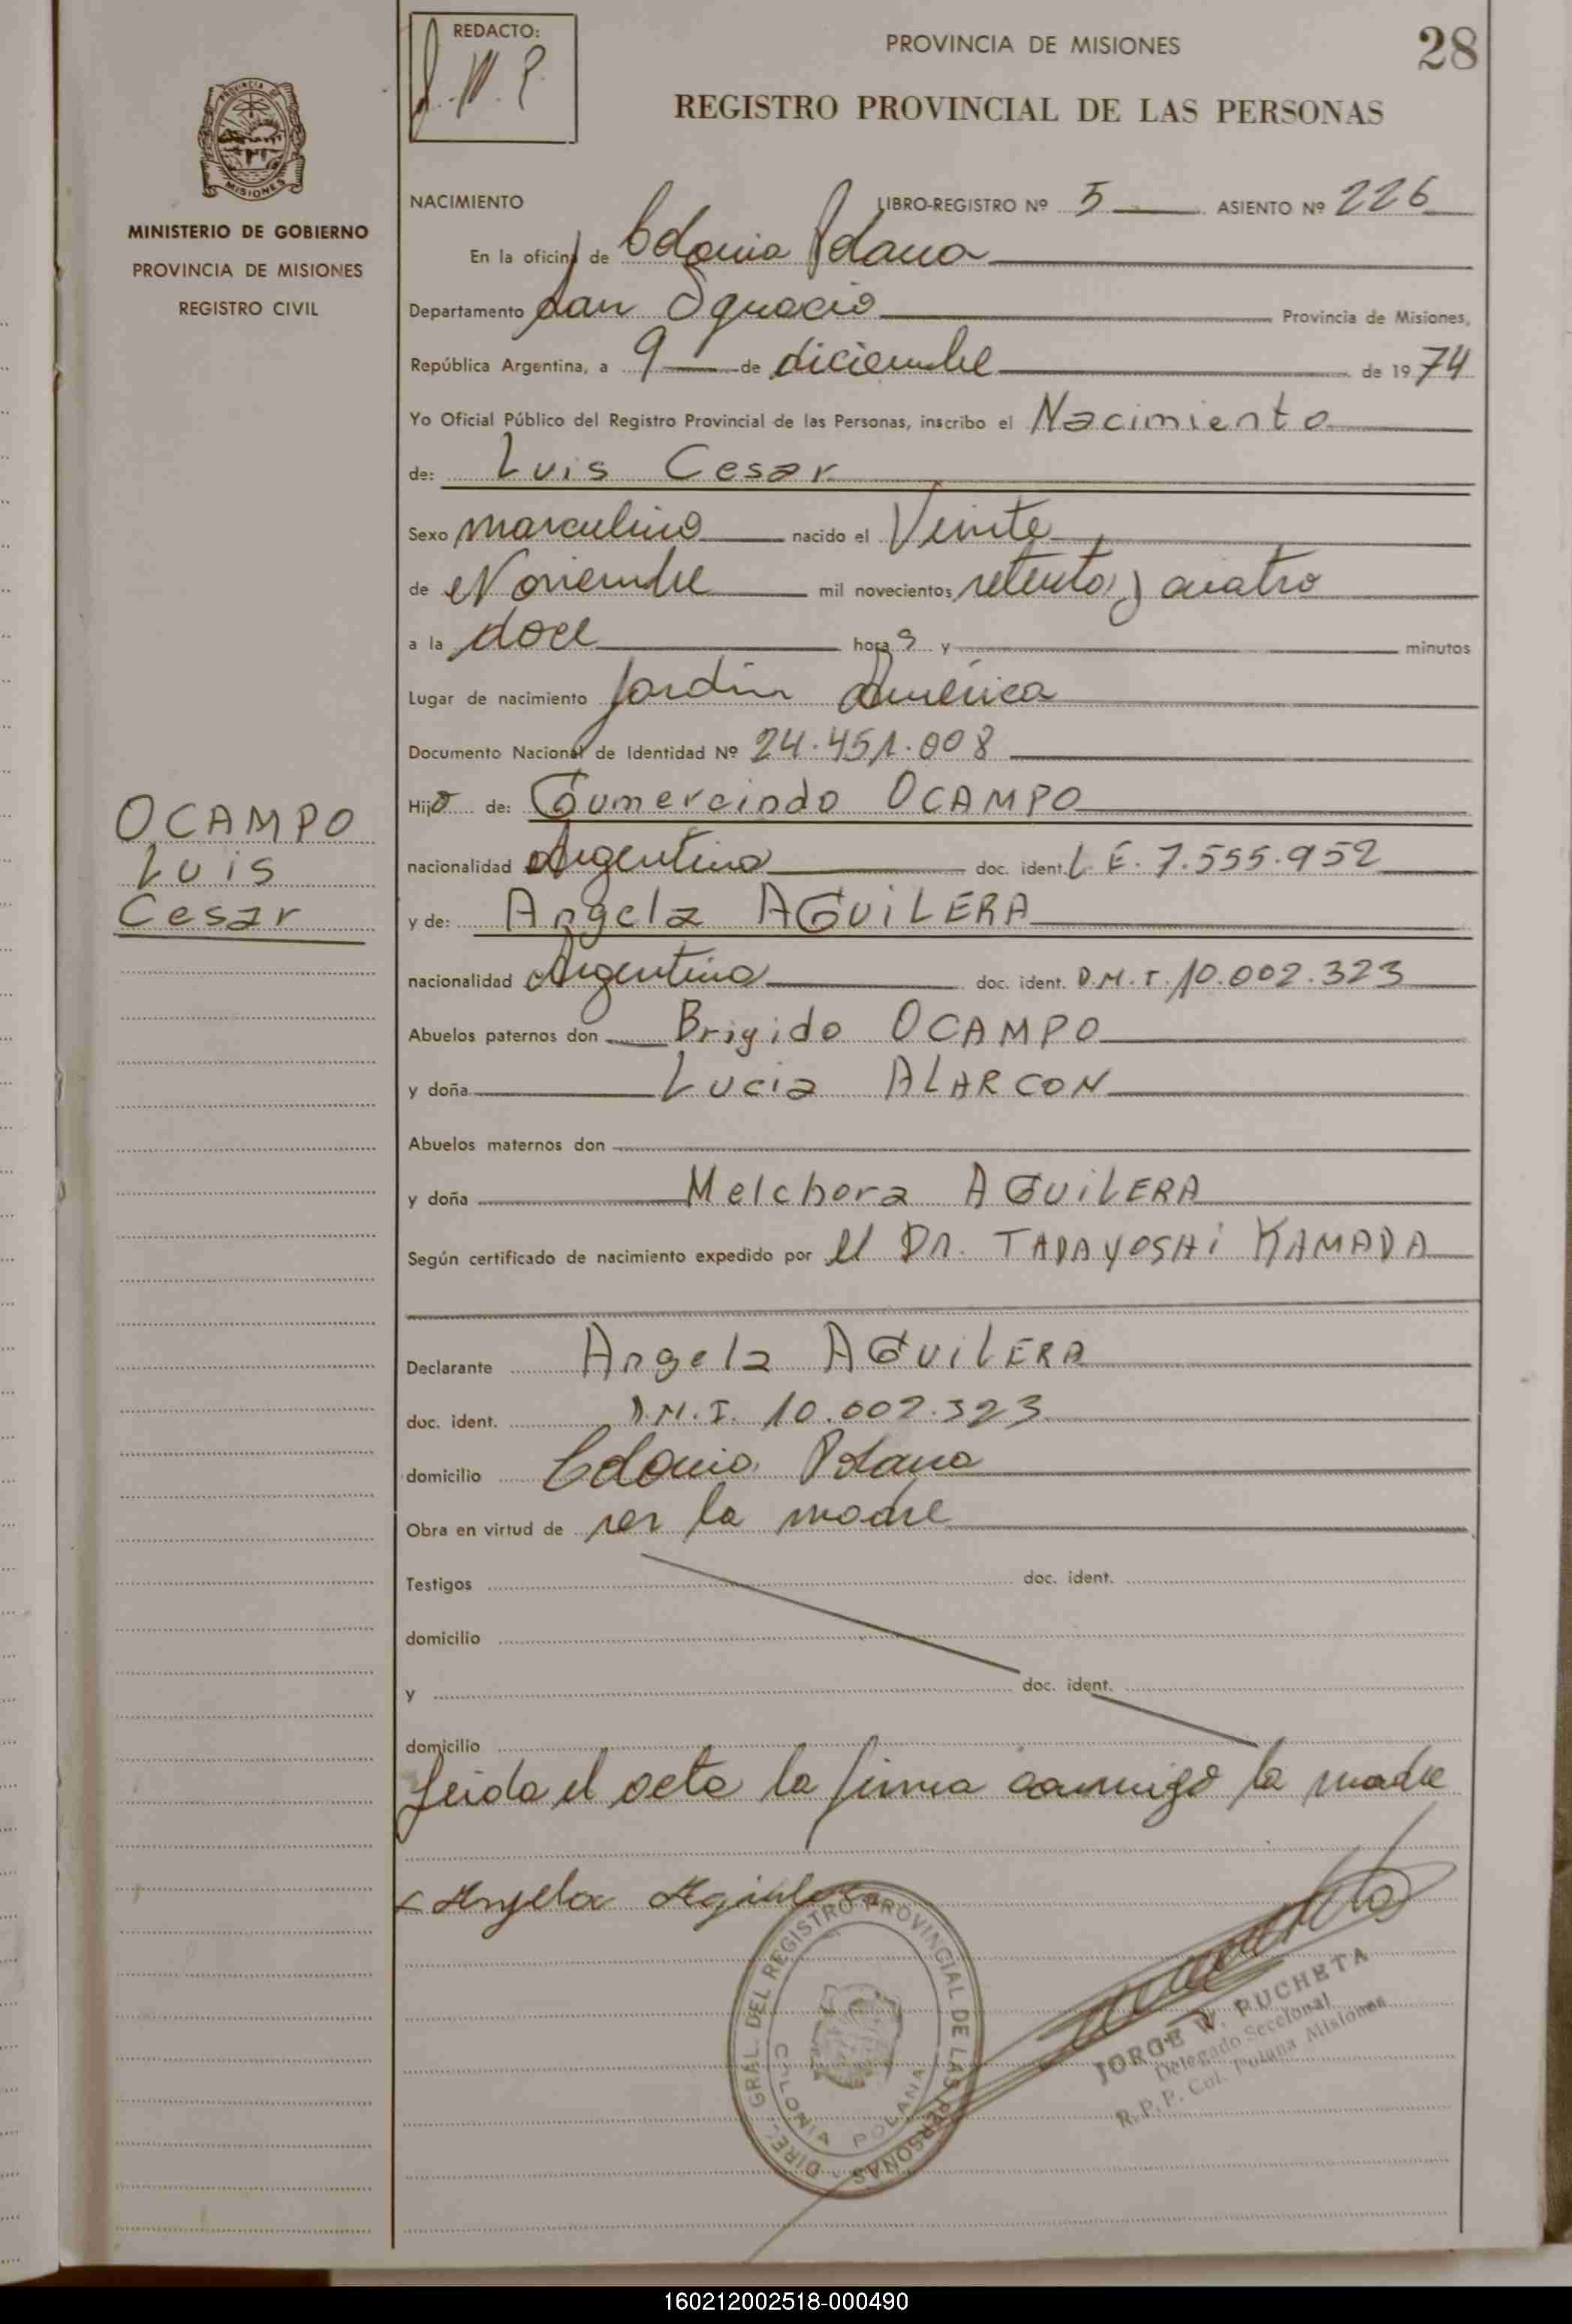 REDACTO:
J. W. P.
PROVINCIA DE MISIONES
28
REGISTRO PROVINCIAL DE LAS PERSONAS
PROVINCIA DE
MISIONES
MINISTERIO DE GOBIERNO
PROVINCIA DE MISIONES
REGISTRO CIVIL
OCAMPO
Luis
Cesar
NACIMIENTO LIBRO-REGISTRO Nº 5 ASIENTO Nº 226
En la oficina de Colonia Polana
Departamento San Ignacio Provincia de Misiones,
República Argentina, a 9 de diciembre de 1974
Yo Oficial Público del Registro Provincial de las Personas, inscribo el Nacimiento
de: Luis Cesar
Sexo masculino nacido el Veinte
de Noviembre mil novecientos setenta y cuatro
a la doce horas y minutos
Lugar de nacimiento Jardín América
Documento Nacional de Identidad Nº 24.451.008
Hijo de: Gumercindo OCAMPO
nacionalidad Argentino doc. ident. L E. 7.555.952
y de: Angela AGUILERA
nacionalidad Argentina doc. ident. D.M.I. 10.002.323
Abuelos paternos don Brigido OCAMPO
y doña Lucia ALARCON
Abuelos maternos don
y doña Melchora AGUILERA
Según certificado de nacimiento expedido por el Dr. TADAYOSHI KAMADA
Declarante Angela AGUILERA
doc. ident. D.M.I. 10.002.323
domicilio Colonia Polana
Obra en virtud de ser la madre
Testigos doc. ident.
domicilio
y doc. ident.
domicilio
Leida el acta la firma conmigo la madre
x Angela Aguilera
DIREC. GRAL. DEL REGISTRO PROVINCIAL DE LAS PERSONAS
COLONIA POLANA
JORGE W. PUCHETA
Delegado Seccional
R.P.P. Col. Polana Misiones
160212002518-000490